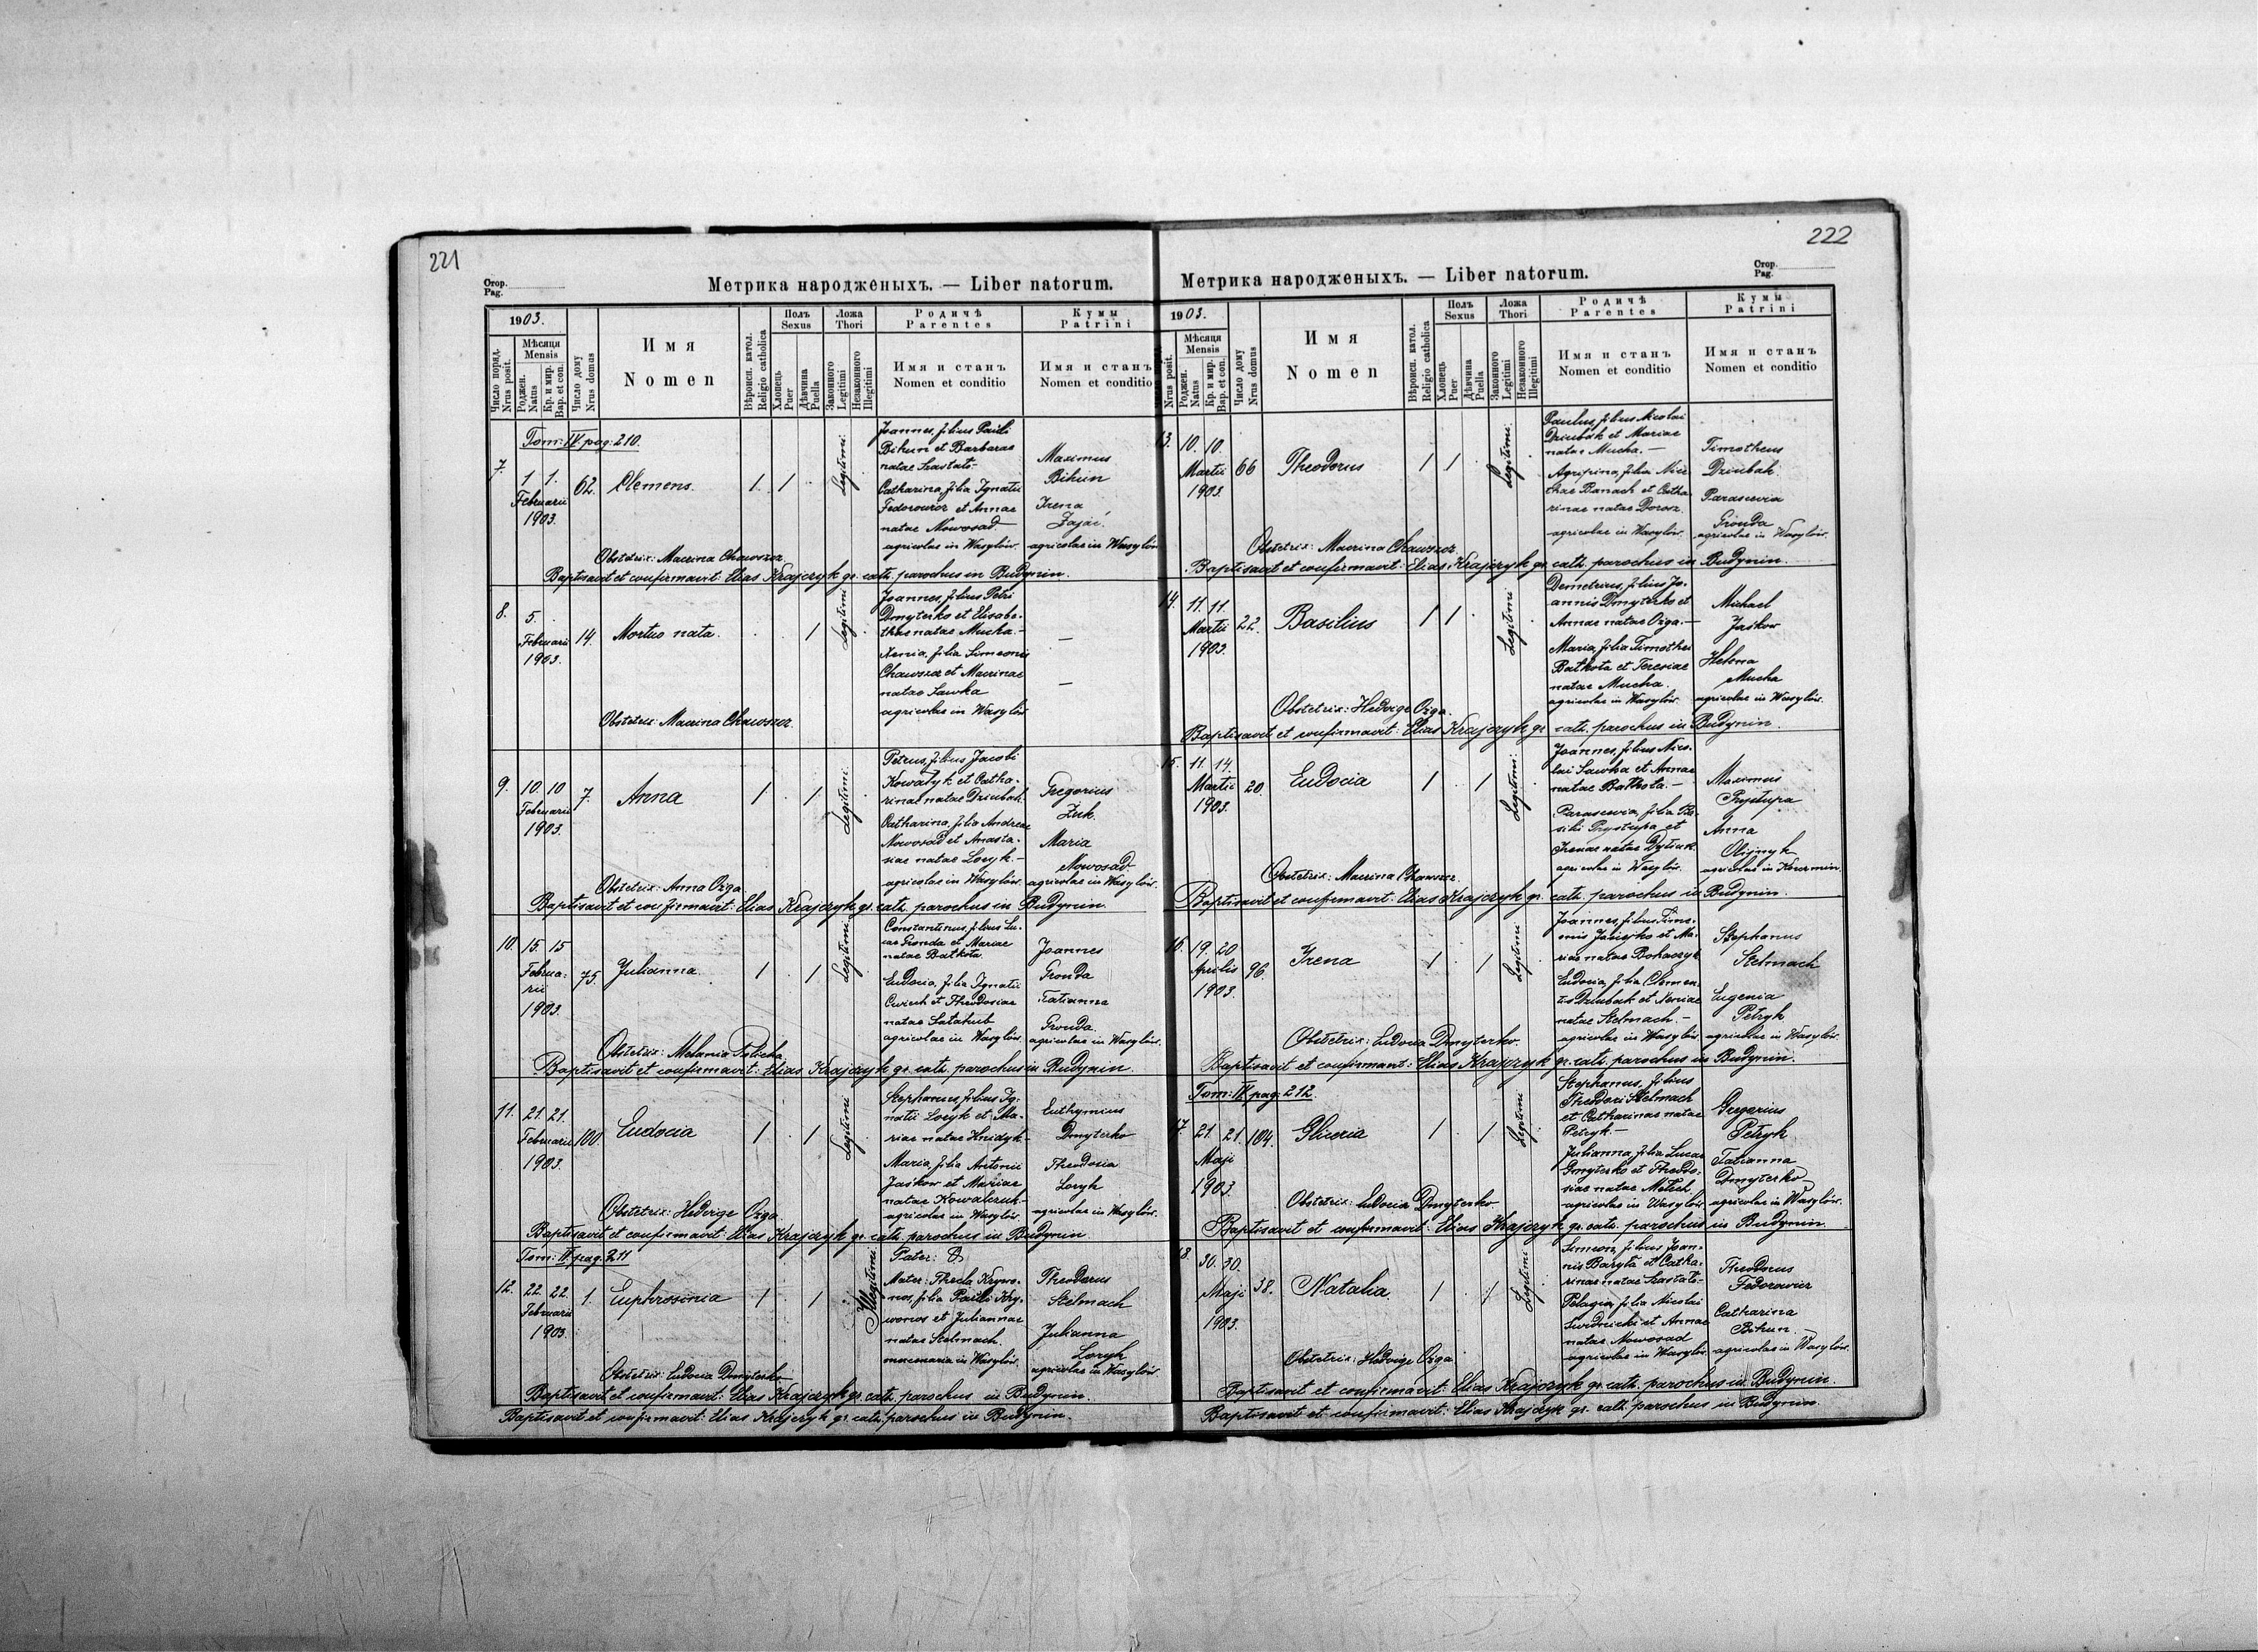 221
Стор.
Pag.
Метрика народженыхъ. — Liber natorum.
1903.
Число поряд.
Nrus posit.
Мѣсяця
Mensis
Роджен.
Natus
Кр. и мир.
Bap. et con.
Число дому
Nrus domus
Имя
Nomen
Вѣроисп. катол.
Religio catholica
Полъ
Sexus
Хлопець
Puer
Дѣвчина
Puella
Ложа
Thori
Законного
Legitimi
Незаконного
Illegitimi
Родичѣ
Parentes
Имя и станъ
Nomen et conditio
Кумы
Patrini
Имя и станъ
Nomen et conditio
Tom: IV pag: 210.
7.
1 1.
Februarii
1903.
62.
Clemens.
1. 1
Legitimi.
Joannes, filius Pauli
Bihun et Barbarae
natae Szastało-
Catharina, filia Ignatii
Fedorowicz et Annae
natae Nowosad-
agricolae in Wasylów.
Maximus
Bihun
Irena
Zając.
agricolae in Wasylów
Obstetrix: Macrina Chawszcz
Baptisavit et confirmavit: Elias Krajczyk gr. cath. parochus in Budynin.
8.
5.
Februarii
1903.
14.
Mortuo nata.
1
Legitimi
Joannes, filius Petri
Dmyterko et Elisabe-
thae natae Mucha.-
Xenia, filia Simeonis
Chawszcz et Macrinae
natae Sawka
agricolae in Wasylów
—
—
Obstetrix: Macrina Chawszcz.
9.
10. 10
Februarii
1903.
7.
Anna
1 1
Legitimi.
Petrus, filius Jacobi
Kowalyk et Catha-
rinae natae Dziubak.
Catharina, filia Andreae
Nowosad et Anasta-
siae natae Loryk.-
agricolae in Wasylów.
Gregorius
Żuk.
Maria
Nowosad
agricolae in Wasylów.
Obstetrix: Anna Ożga
Baptisavit et confirmavit: Elias Krajczyk gr. cath. parochus in Budynin.
10.
15. 15
Februa-
rii
1903.
75.
Julianna.
1 1
Legitimi
Constantinus, filius Lu-
cae Gronda et Mariae
natae Batkota.
Eudocia, filia Ignatii
Ćwiech et Theodosiae
natae Satahub
agricolae in Wasylów.
Joannes
Gronda
Tatianna
Gronda.
agricolae in Wasylów.
Obstetrix: Melania Policha
Baptisavit et confirmavit: Elias Krajczyk gr. cath. parochus in Budynin.
11.
21. 21.
Februarii
1903.
100.
Eudocia
1 1
Legitimi
Stephanus, filius Ig-
natii Loryk et Ma-
riae natae Hnidyk-
Maria, filia Antonii
Jaśkow et Mariae
natae Kowalczuk-
agricolae in Wasylów.
Euthymius
Dmyterko
Theodosia
Loryk
agricolae in Wasylów.
Obstetrix: Hedvige Ożga
Baptisavit et confirmavit: Elias Krajczyk gr. cath. parochus in Budynin
Tom: IV pag: 211
12.
22. 22.
Februarii
1903.
1.
Euphrosinia
1 1
Illegitimi
Pater:
Mater: Thecla Krywo-
nos, filia Pauli Kry-
wonos et Juliannae
natae Stelmach.
mercenaria in Wasylów.
Theodorus
Stelmach
Julianna
Loryk
agricolae in Wasylów.
Obstetrix: Eudocia Dmyterko
Baptisavit et confirmavit: Elias Krajczyk gr. cath. parochus in Budynin.
Baptisavit et confirmavit: Elias Krajczyk gr. cath. parochus in Budynin.
222
Стор.
Pag.
Метрика народженыхъ. — Liber natorum.
1903.
Nrus posit.
Мѣсяця
Mensis
Роджен.
Natus
Кр. и мир.
Bap. et con.
Число дому
Nrus domus
Имя
Nomen
Вѣроисп. катол.
Religio catholica
Полъ
Sexus
Хлопець
Puer
Дѣвчина
Puella
Ложа
Thori
Законного
Legitimi
Незаконного
Illegitimi
Родичѣ
Parentes
Имя и станъ
Nomen et conditio
Кумы
Patrini
Имя и станъ
Nomen et conditio
13.
10. 10.
Martii
1903.
66
Theodorus
1 1
Legitimi.
Paulus, filius Nicolai
Dziubak et Mariae
natae Mucha.-
Agripina, filia Nice-
tae Banach et Catha-
rinae natae Dorosz.
agricolae in Wasylów.
Timotheus
Dziubak.
Parascevia
Gronda
agricolae in Wasylów.
Obstetrix: Macrina Chawszcz
Baptisavit et confirmavit: Elias Krajczyk gr. cath. parochus in Budynin.
14.
11. 11.
Martii
1903.
22.
Basilius
1 1
Legitimi
Demetrius, filius Jo-
annis Dmyterko et
Annae natae Ożga.-
Maria, filia Timothei
Batkota et Teresiae
natae Mucha.
agricolae in Wasylów.
Michael
Jaśkow
Helena
Mucha
agricolae in Wasylów.
Obstetrix: Hedvige Ożga.
Baptisavit et confirmavit: Elias Krajczyk gr. cath. parochus in Budynin.
15.
11. 14.
Martii
1903.
20.
Eudocia
1 1
Legitimi.
Joannes, filius Nico-
lai Sawka et Annae
natae Batkota.-
Parascevia, filia Ba-
silii Prystupa et
Irenae natae Dytiuk
agricolae in Wasylów.
Maximus
Prystupa
Anna
Olijnyk
agricolae in Korczmin.
Obstetrix: Macrina Chawszcz.
Baptisavit et confirmavit: Elias Krajczyk gr. cath. parochus in Budynin.
16.
19. 20
Aprilis
1903.
96.
Irena
1 1
Legitimi
Joannes, filius Sime-
onis Jasiejko et Ma-
riae natae Bohaczyk
Eudocia, filia Clemen-
tis Dziubak et Xeniae
natae Stelmach.-
agricolae in Wasylów.
Stephanus
Stelmach
Eugenia
Petryk
agricolae in Wasylów.
Obstetrix: Eudocia Dmyterko.
Baptisavit et confirmavit: Elias Krajczyk gr. cath. parochus in Budynin.
Tom: IV pag: 212.
17.
21. 21.
Maji
1903.
104.
Gliceria
1 1
Legitimi
Stephanus, filius
Theodori Stelmach
et Catharinae natae
Petryk.-
Julianna, filia Lucae
Dmyterko et Theodo-
siae natae Melech.
agricolae in Wasylów.
Gregorius
Petryk
Tatianna
Dmyterko
agricolae in Wasylów.
Obstetrix: Eudocia Dmyterko
Baptisavit et confirmavit: Elias Krajczyk gr. cath. parochus in Budynin.
18.
30. 30.
Maji
1903.
38.
Natalia
1 1
Legitimi
Simeon, filius Joan-
nis Baryła et Catha-
rinae natae Szastało-
Pelagia, filia Nicolai
Swidnicki et Annae
natae Nowosad
agricolae in Wasylów
Theodorus
Fedorowicz
Catharina
Bihun.
agricolae in Wasylów.
Obstetrix: Hedvige Ożga
Baptisavit et confirmavit: Elias Krajczyk gr. cath. parochus in Budynin.
Baptisavit et confirmavit: Elias Krajczyk gr. cath. parochus in Budynin.